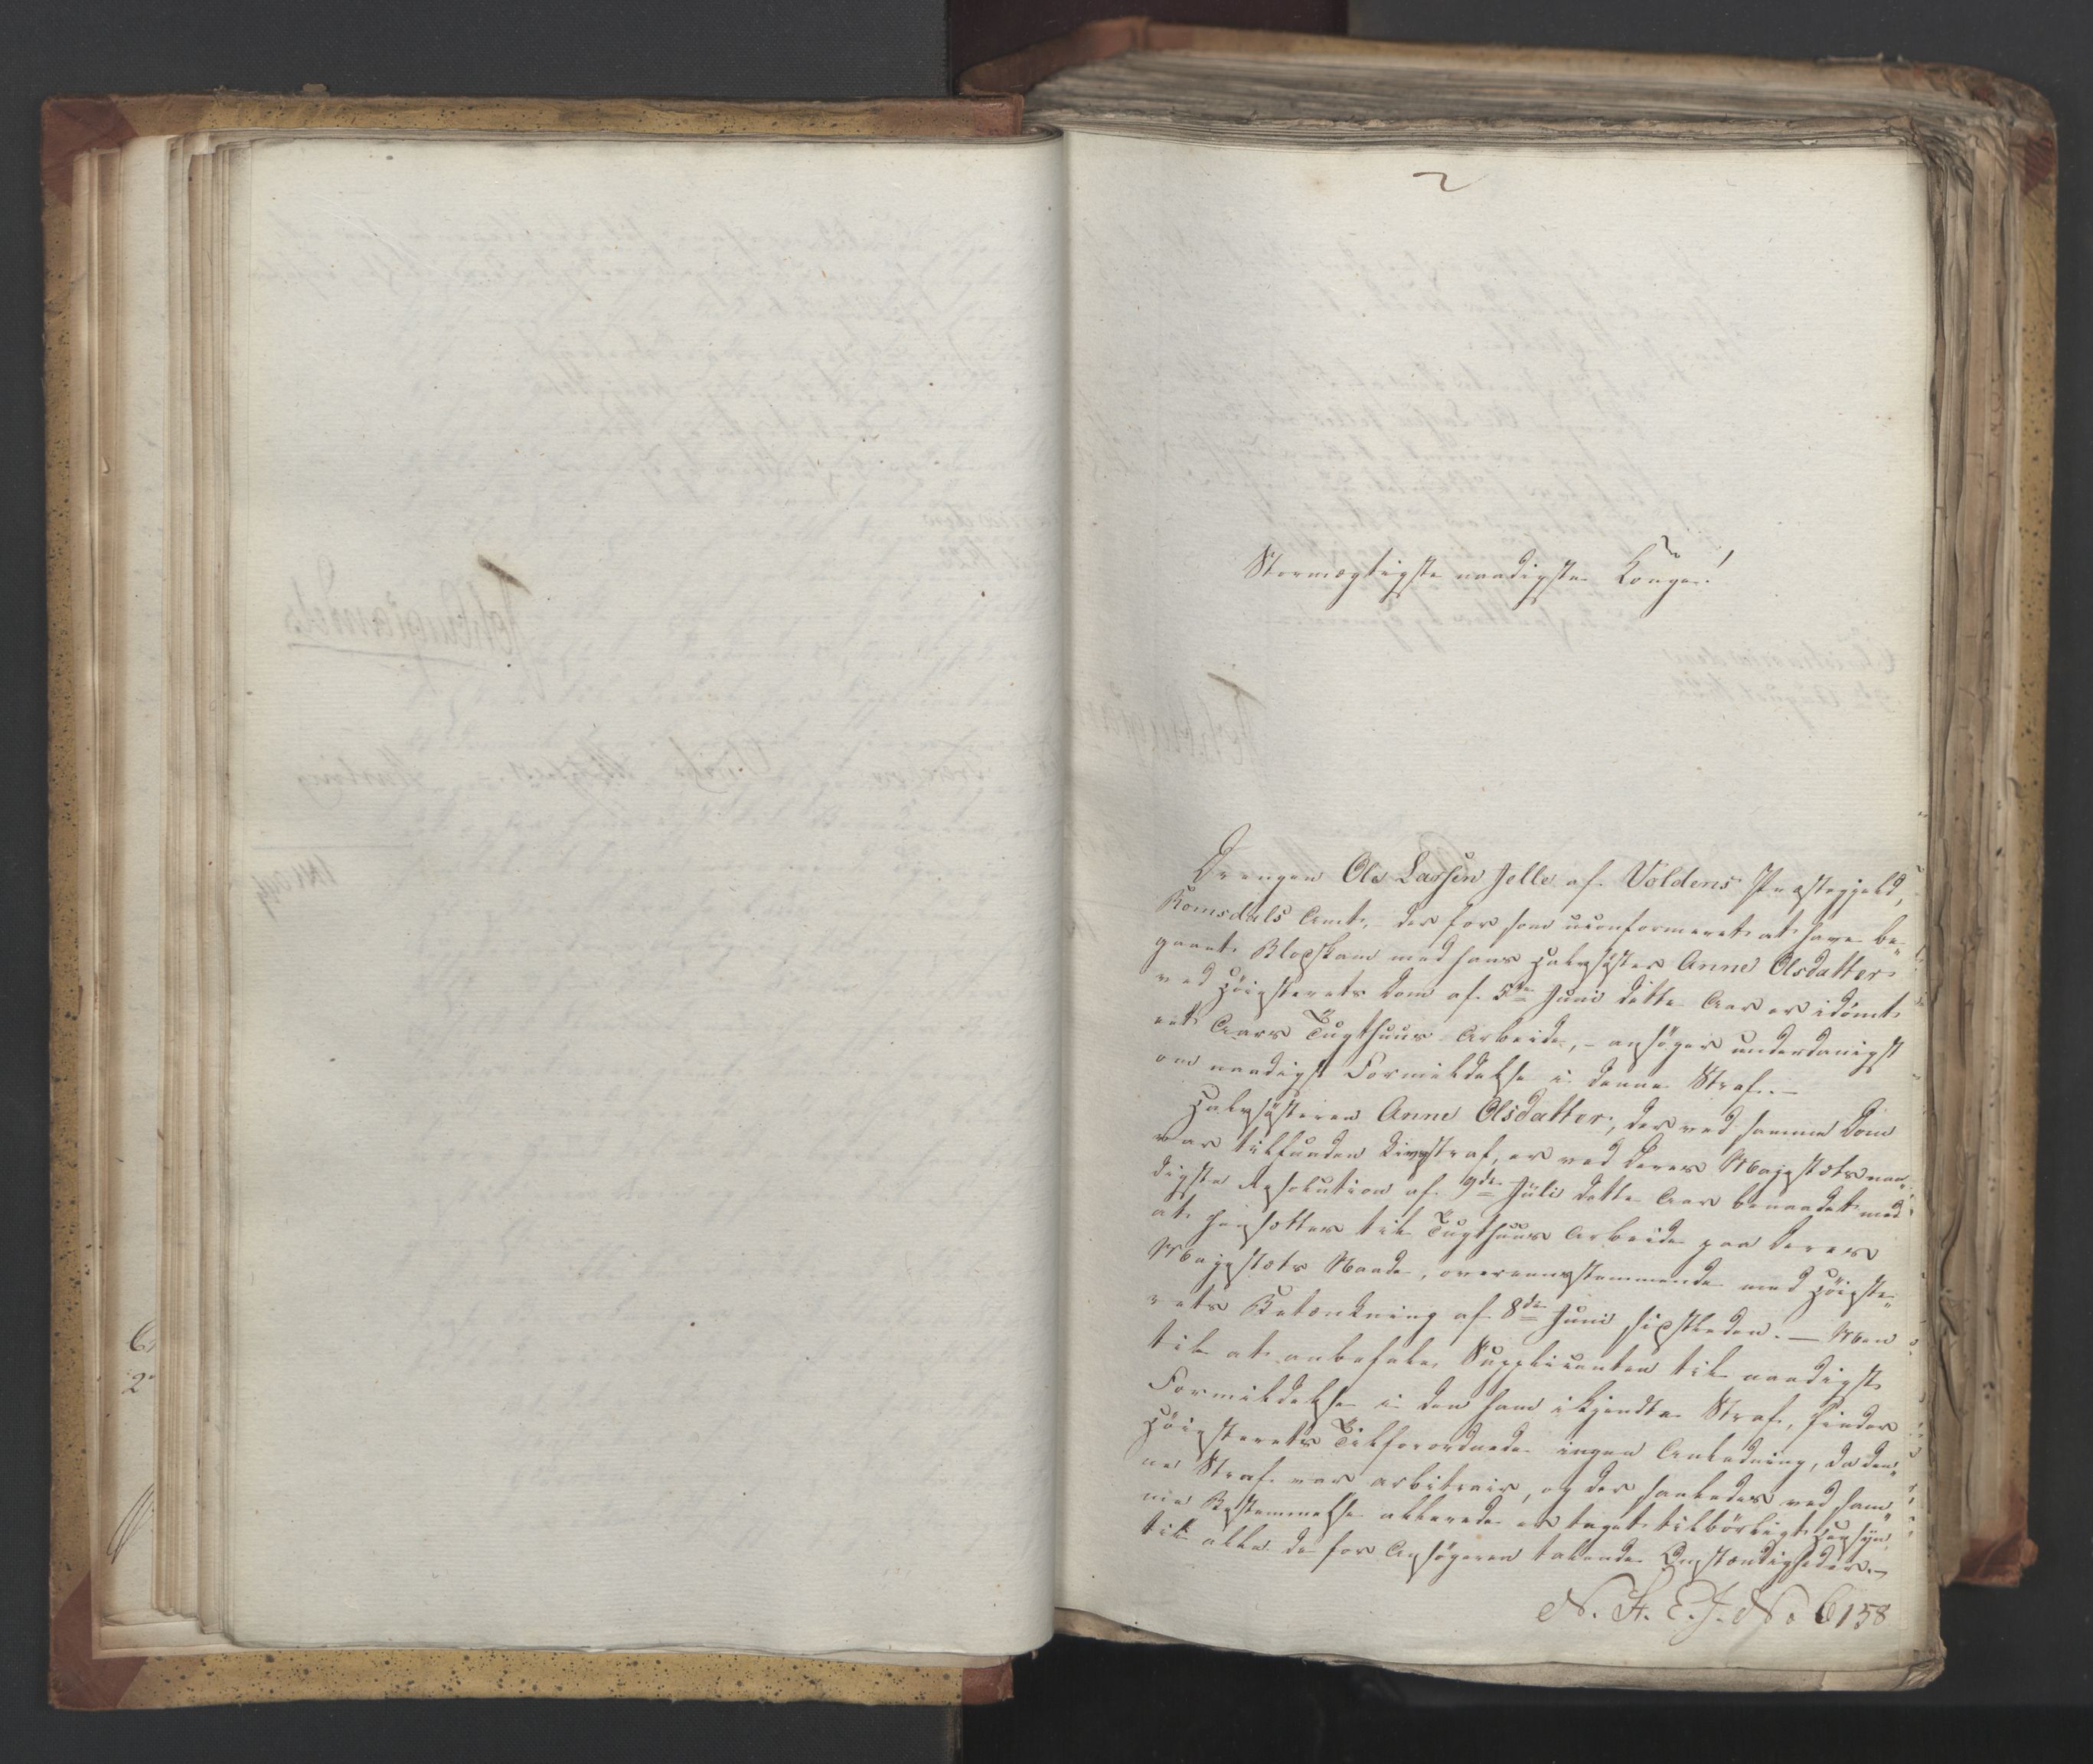 2
Stormægtigste naadigste Konge!
Drengen Ole Lassen Jelle af Voldens Præstegjeld,
Romsdals Amt, der for som uconfirmeret at have be„
gaaet Blodskam med hans Halvsøster Anne Olsdatter
ved Høiesterets Dom af 5te Juni dette Aar er idømt
eet Aars Tugthuus Arbeide, – ansøger underdanigst
om naadigst Formildelse i denne Straf. –
Halvsøsteren Anne Olsdatter, der ved samme Dom
var tilfunden Livsstraf, er ved Deres Majestæts naa„
digste Resolution af 9de Juli dette Aar benaadet med
at hensættes til Tugthuus Arbeide paa Deres
Majestæts Naade, overeensstemmende med Høieste„
rets Betænkning af 8de Juni sidstleden. – Men
til at anbefale Supplicanten til naadigst
Formildelse i den ham ikjendte Straf, finder
Høiesterets Tilforordnede ingen Anledning, da den„
ne Straf var arbitrair, og der saaledes ved sam„
mes Bestemmelse allerede er taget tilbørligt Hensyn
til alle de for Ansøgeren talende Omstændigheder. –
N. H. E. J. No 6158